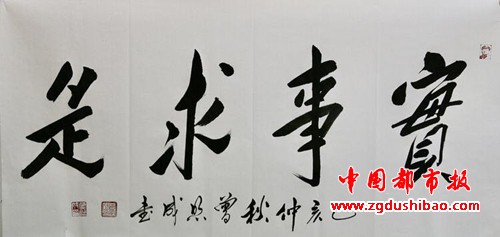 實事求是
己亥仲秋曾 書
中国都市报
www.zgdushibao.com